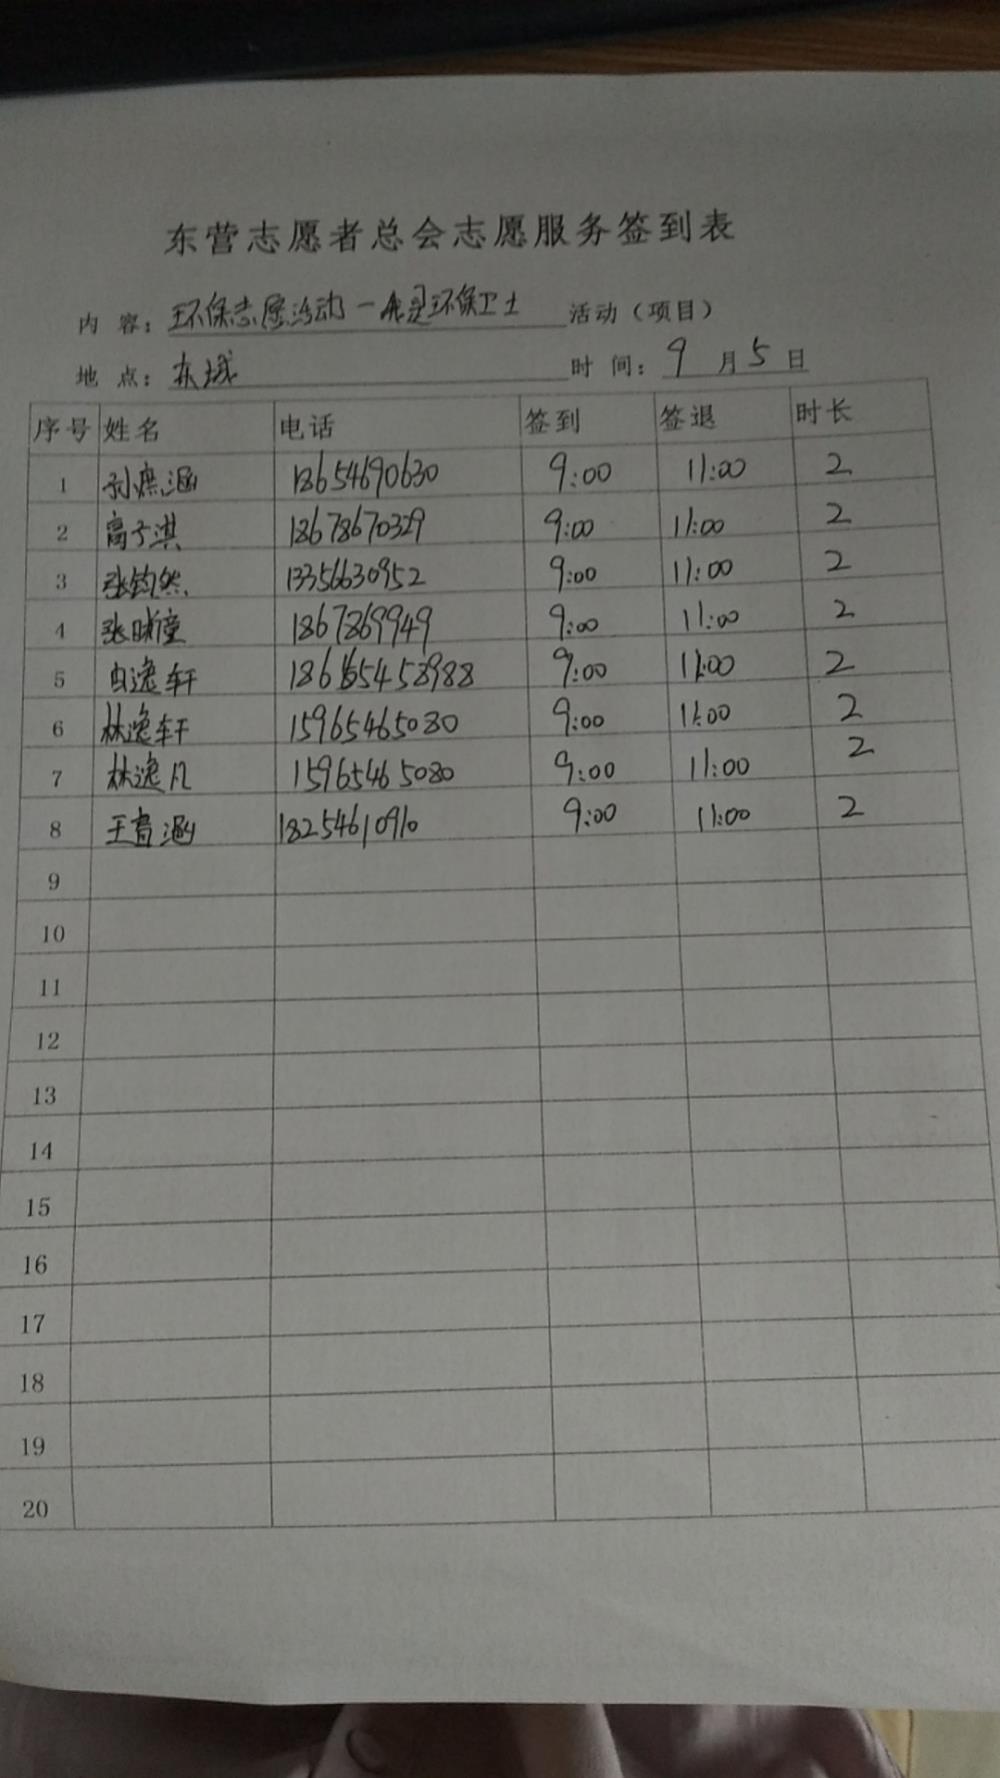 东营志愿者总会志愿服务签到表
内 容：环保志愿活动一我是环保卫士 活动（项目）
地 点：东城 时 间：9 月 5 日
序号 姓名 电话 签到 签退 时长
1 涵 18654690630 9:00 11:00 2
2 高子淇 18678670329 9:00 11:00 2
3 张钧然 13356630952 9:00 11:00 2
4 张晞童 1867869949 9:00 11:00 2
5 逸轩 9:00 11:00 2
6 林逸轩 15965465080 9:00 11:00 2
7 林逸凡 15965465080 9:00 11:00 2
8 王音涵 18254610910 9:00 11:00 2
9
10
11
12
13
14
15
16
17
18
19
20